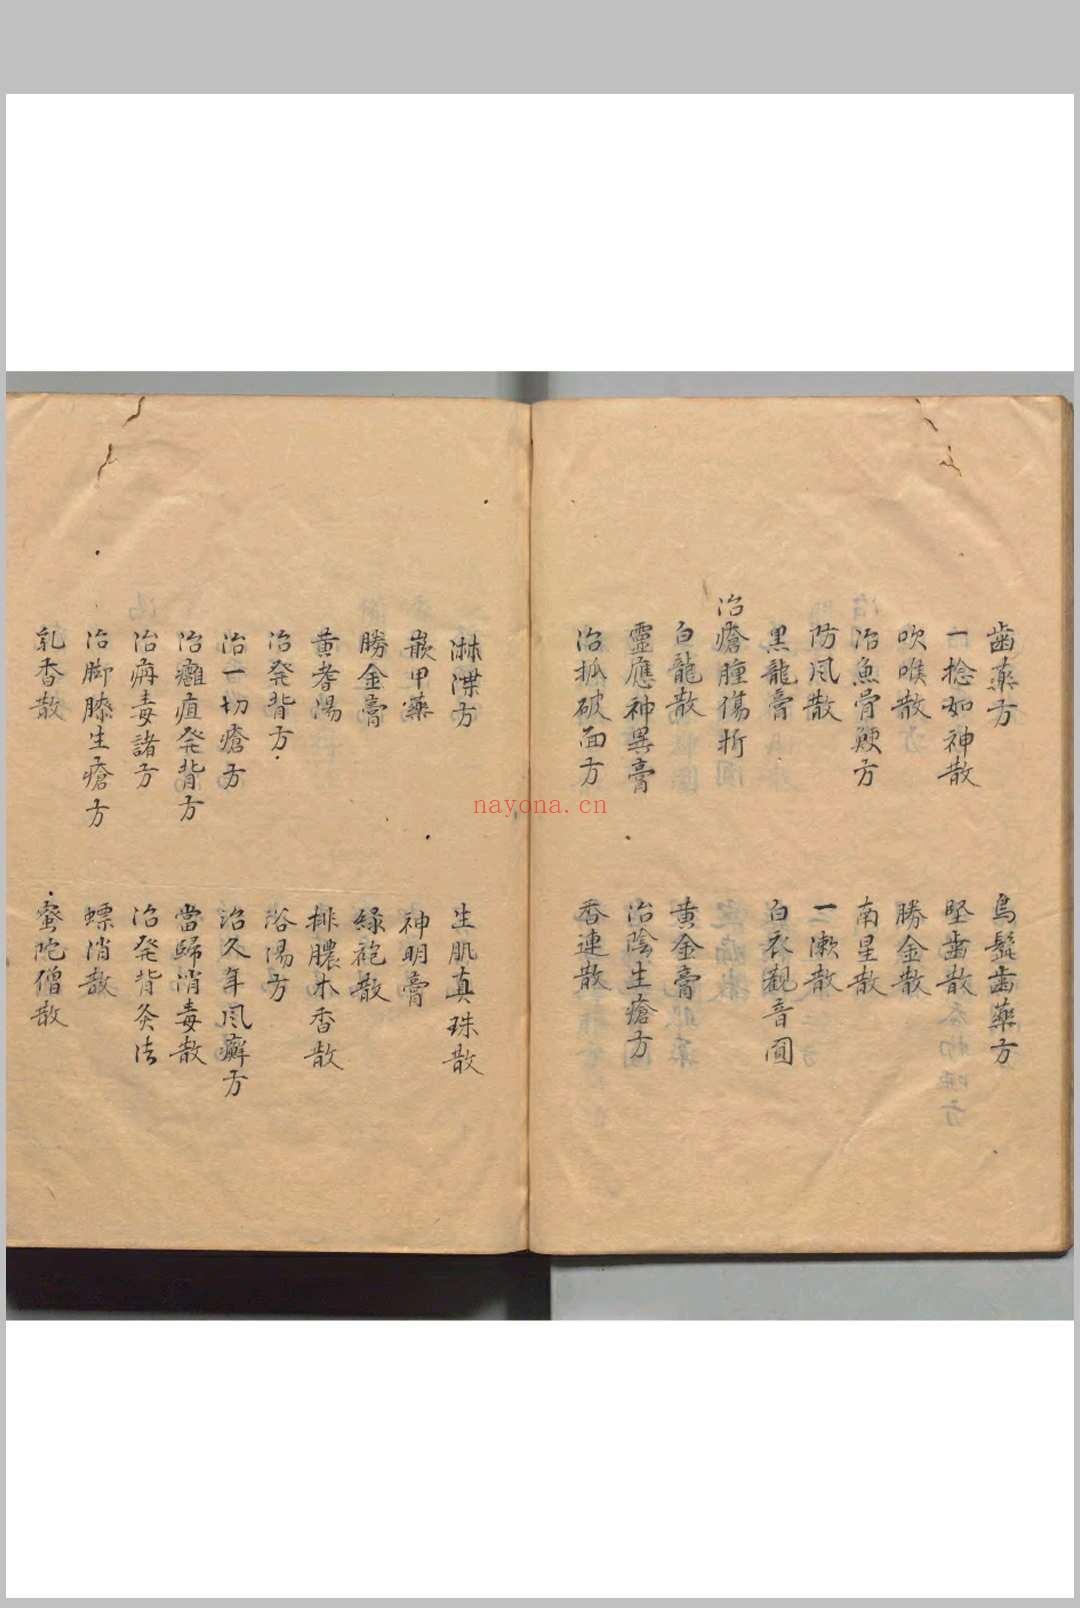 歯薬方
烏髭歯薬方
一捻如神散
堅歯散
吹喉散
勝金散
治魚骨鯁方
南星散
防风散
一漱散
黒龍膏
白衣観音圓
治瘡腫傷折
白龍散
黄金膏
靈應神異膏
治陰生瘡方
治抓破面方
香連散
淋渫方
生肌真珠散
嵌甲薬
神明膏
勝金膏
緑袍散
黄耆湯
排膿木香散
治発背方
浴湯方
治一切瘡方
治久年风癬方
治癰疽発背方
當歸消毒散
治病毒諸方
治発背灸法
治脚膝生瘡方
螵消散
乳香散
蜜陀僧散
nayona.cn